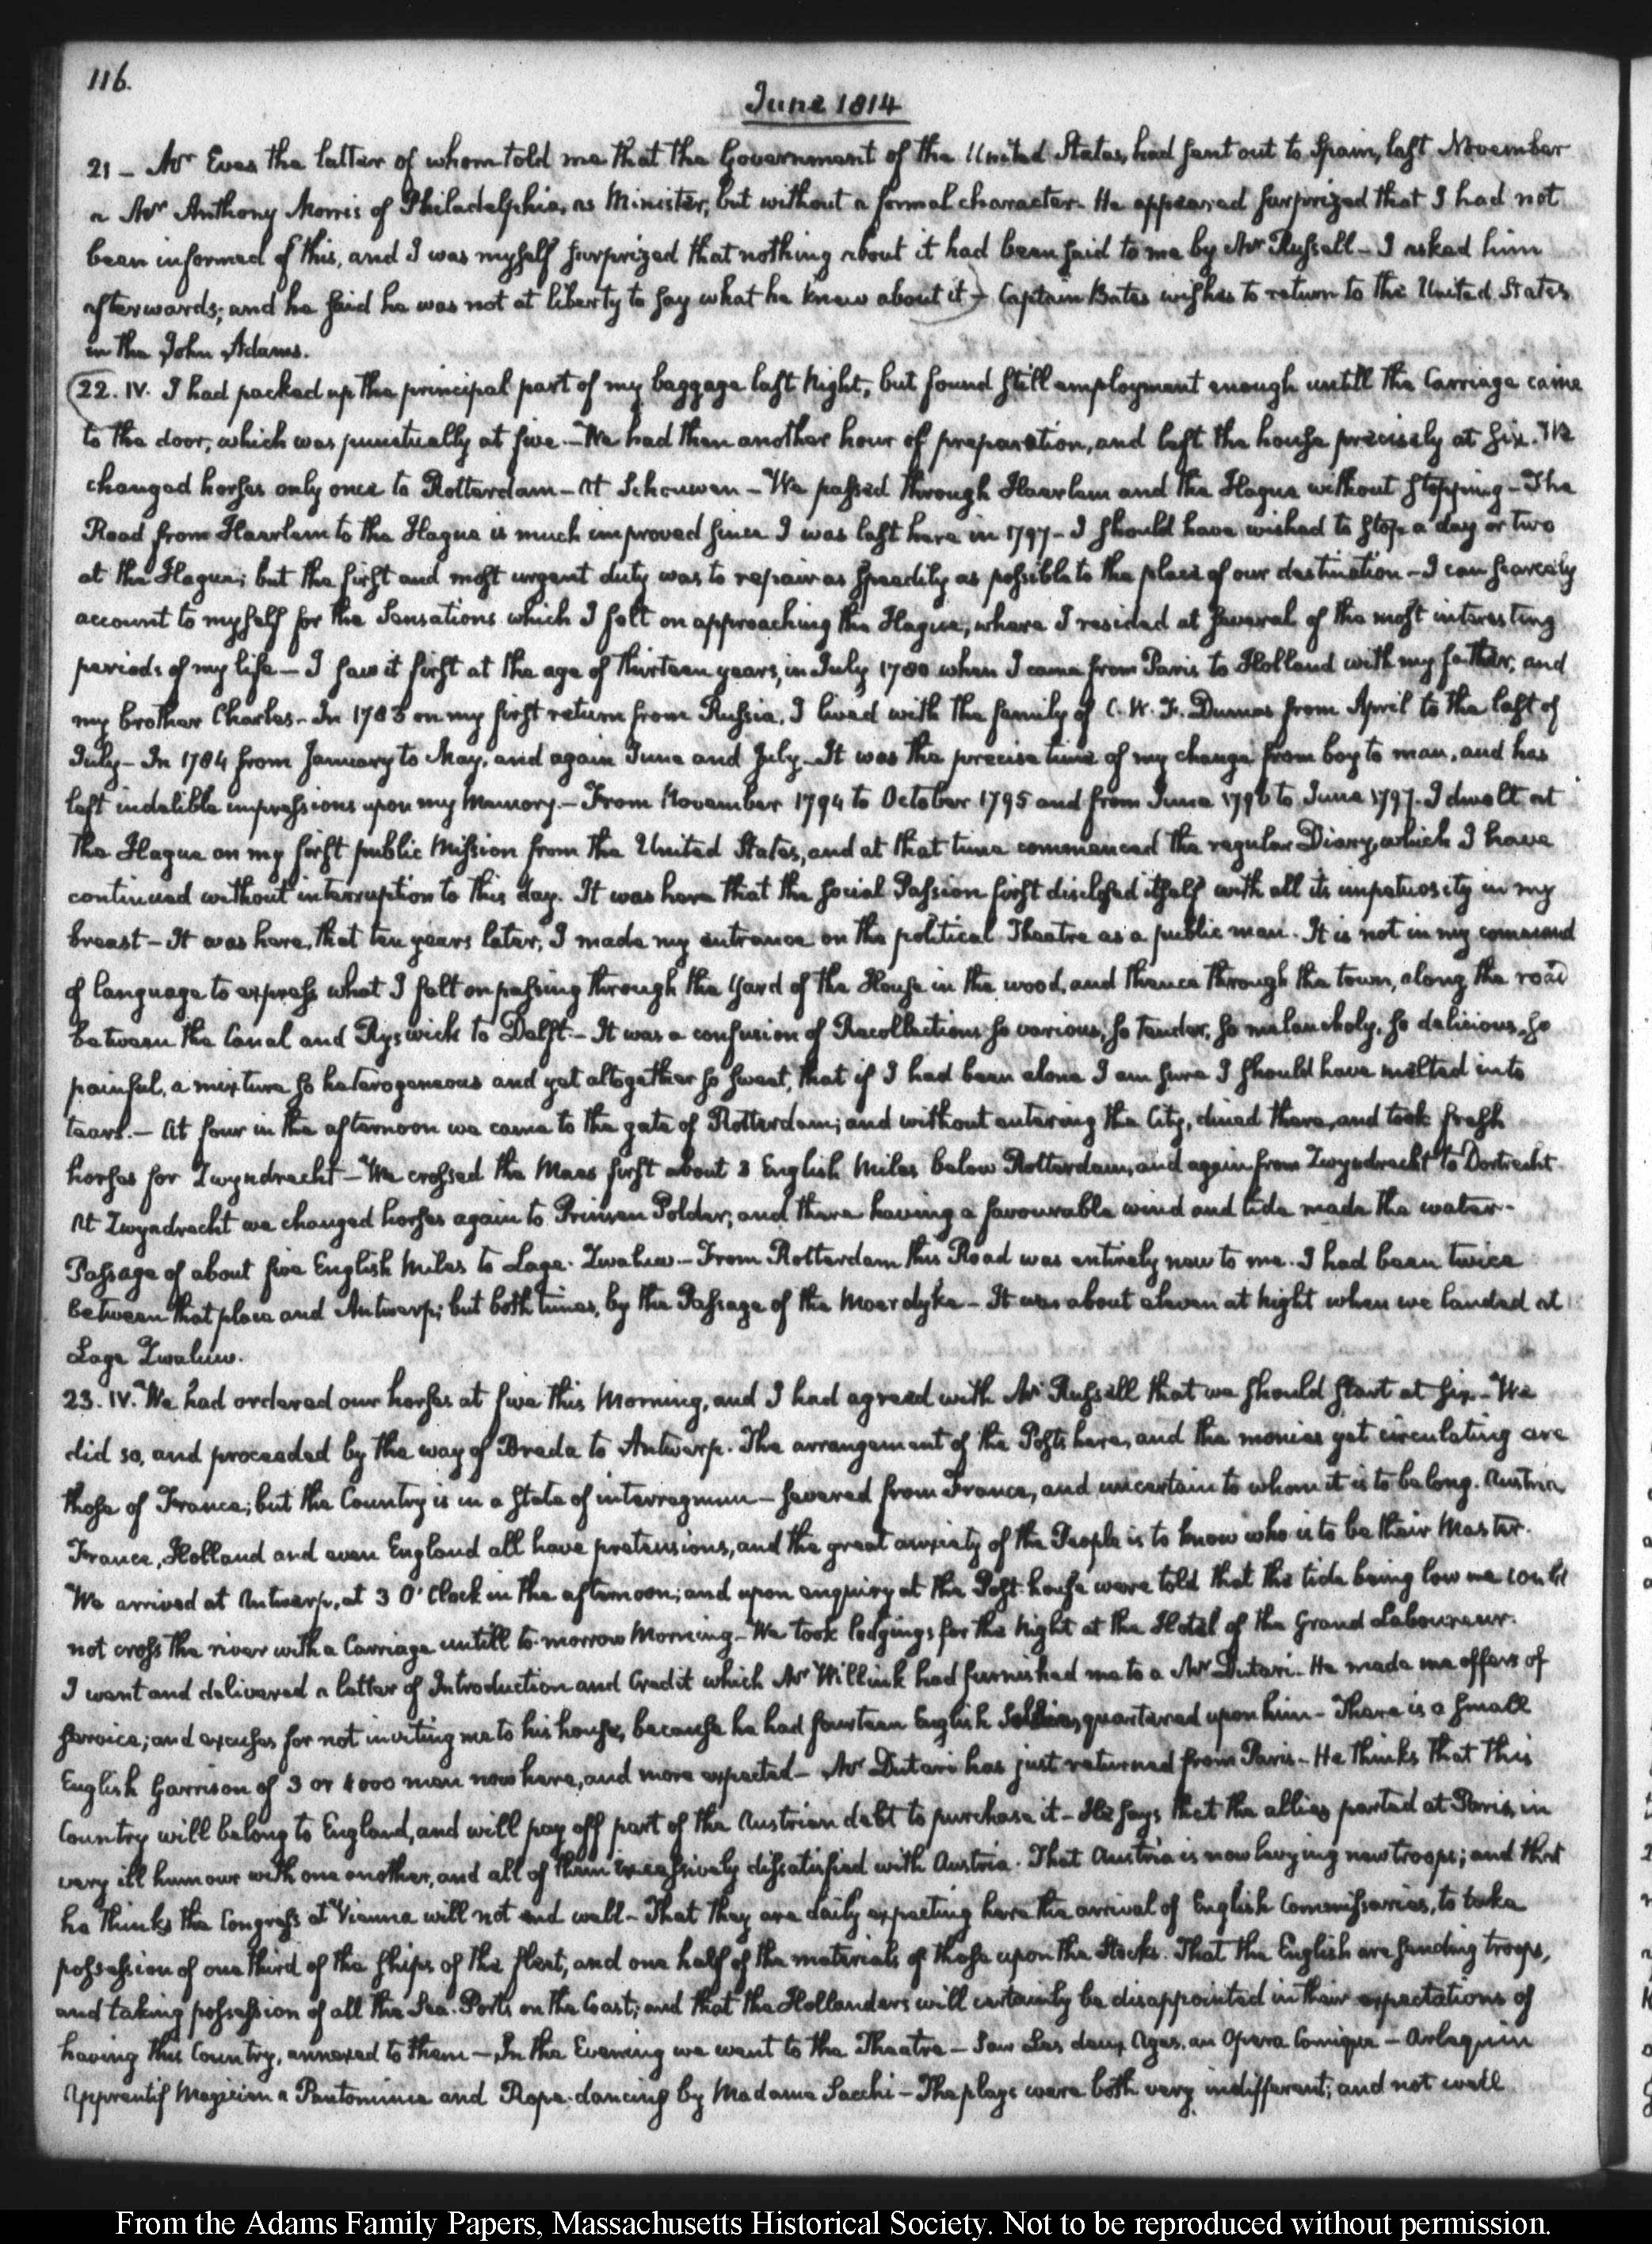 116.
June 1814
21 – Mr Eves the latter of whom told me that the Government of the United States, had sent out to Spain, last November
a Mr Anthony Morris of Philadelphia, as Minister, but without a formal character. He appeared surprized that I had not
been informed of this, and I was myself surprized that nothing about it had been said to me by Mr Russell – I asked him
afterwards; and he said he was not at liberty to say what he knew about it – Captain Bates wishes to return to the United States
in the John Adams.
22. IV. I had packed up the principal part of my baggage last Night, but found still employment enough untill the Carriage came
to the door, which was punctually at five – We had then another hour of preparation, and left the house precisely at six. We
changed horses only once to Rotterdam – At Schouwen – We passed through Haarlem and the Hague without stopping – The
Road from Haarlem to the Hague is much improved since I was last here in 1797 – I should have wished to stop a day or two
at the Hague; but the first and most urgent duty was to repair as speedily as possible to the place of our destination – I can scarcely
account to myself for the Sensations which I felt on approaching the Hague, where I resided at several of the most interesting
periods of my life – I saw it first at the age of thirteen years, in July 1780 when I came from Paris to Holland with my father, and
my brother Charles – In 1783 on my first return from Russia, I lived with the family of C. W. F. Dumas from April to the last of
July – In 1784 from January to May, and again June and July – It was the precise time of my change from boy to man, and has
left indelible impressions upon my Memory. – From November 1794 to October 1795 and from June 1796 to June 1797. I dwelt at
the Hague on my first public Mission from the United States, and at that time commenced the regular Diary, which I have
continued without interruption to this day. It was here that the social Passion first disclosed itself with all its impetuosity in my
breast – It was here, that ten years later, I made my entrance on the political Theatre as a public man. It is not in my command
of language to express what I felt on passing through the Yard of the House in the wood, and thence through the town, along the road
between the Canal and Ryswick to Delft – It was a confusion of Recollections so various, so tender, so melancholy, so delicious, so
painful, a mixture so heterogeneous and yet altogether so sweet, that if I had been alone I am sure I should have melted into
tears. – At four in the afternoon we came to the gate of Rotterdam; and without entering the City, dined there, and took fresh
horses for Zwyndrecht – We crossed the Maas first about 3 English Miles below Rotterdam, and again from Zwyndrecht to Dortrecht.
At Zwyndrecht we changed horses again to Prinsen Polder; and there having a favourable wind and tide made the water-
Passage of about five English Miles to Lage-Zwaluw – From Rotterdam this Road was entirely new to me. I had been twice
between that place and Antwerp; but both times, by the Passage of the Moerdyke – It was about eleven at Night when we landed at
Lage Zwaluw.
23. IV. We had ordered our horses at five this Morning, and I had agreed with Mr Russell that we should start at six – We
did so, and proceeded by the way of Breda to Antwerp. The arrangement of the Posts here, and the monies yet circulating are
those of France; but the Country is in a state of interregnum – severed from France, and uncertain to whom it is to belong. Austria
France, Holland and even England all have pretensions, and the great anxiety of the People is to know who is to be their Master.
We arrived at Antwerp, at 3 O'Clock in the afternoon; and upon enquiry at the Post-house were told that the tide being low we could
not cross the river with a Carriage untill to-morrow Morning – We took lodgings for the Night at the Hotel of the Grand Laboureur.
I went and delivered a letter of Introduction and Credit which Mr Willink had furnished me to a Mr Dutari – He made me offers of
service; and excuses for not inviting me to his house, because he had fourteen English Soldiers quartered upon him – There is a small
English Garrison of 3 or 4000 men now here, and more expected – Mr Dutari has just returned from Paris – He thinks that this
Country will belong to England, and will pay off part of the Austrian debt to purchase it – He says that the allies parted at Paris, in
very ill humour with one another, and all of them excessively dissatisfied with Austria. That Austria is now levying new troops; and that
he thinks the Congress at Vienna will not end well – That they are daily expecting here the arrival of English Commissaries, to take
possession of one third of the ships of the fleet, and one half of the materials of those upon the Stocks. That the English are sending troops,
and taking possession of all the Sea-Ports on the Coast; and that the Hollanders will certainly be disappointed in their expectations of
having this Country, annexed to them – In the Evening we went to the Theatre – Saw Les deux Ages, an Opera Comique – Arlequin
Apprentif Magicien a Pantomime and Rope-dancing by Madame Sacchi – The plays were both very indifferent, and not well
From the Adams Family Papers, Massachusetts Historical Society. Not to be reproduced without permission.